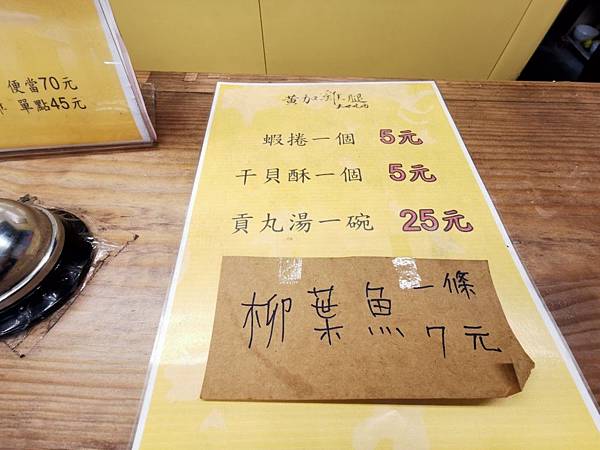 便當70元
單點45元
黃加雞腿
蝦捲一個 5元
干貝酥一個 5元
貢丸湯一碗 25元
柳葉魚一條
7元